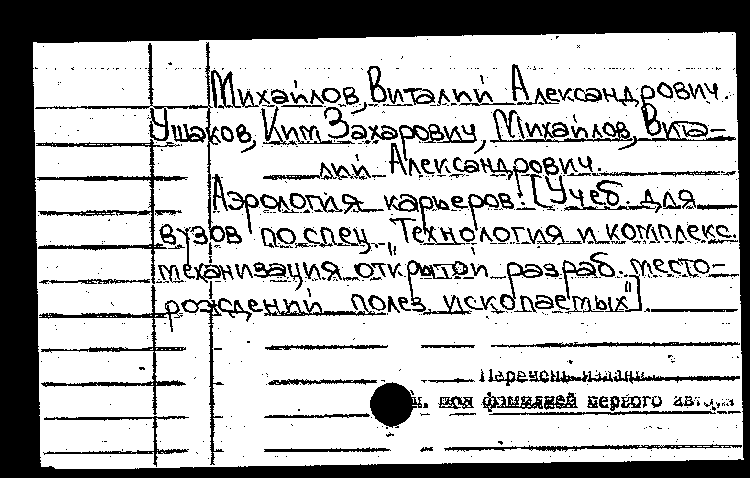 Михайлов, Виталий Александрович.
Ушаков, Ким Захарович, Михайлов, Вита-
лий Александрович.
Аэрология карьеров: [Учеб. для
вузов по спец. „Технология и комплекс.
механизация открытой разраб. место-
рождений полез. ископаемых"]
Перечень издани
см. под фамилией первого автора